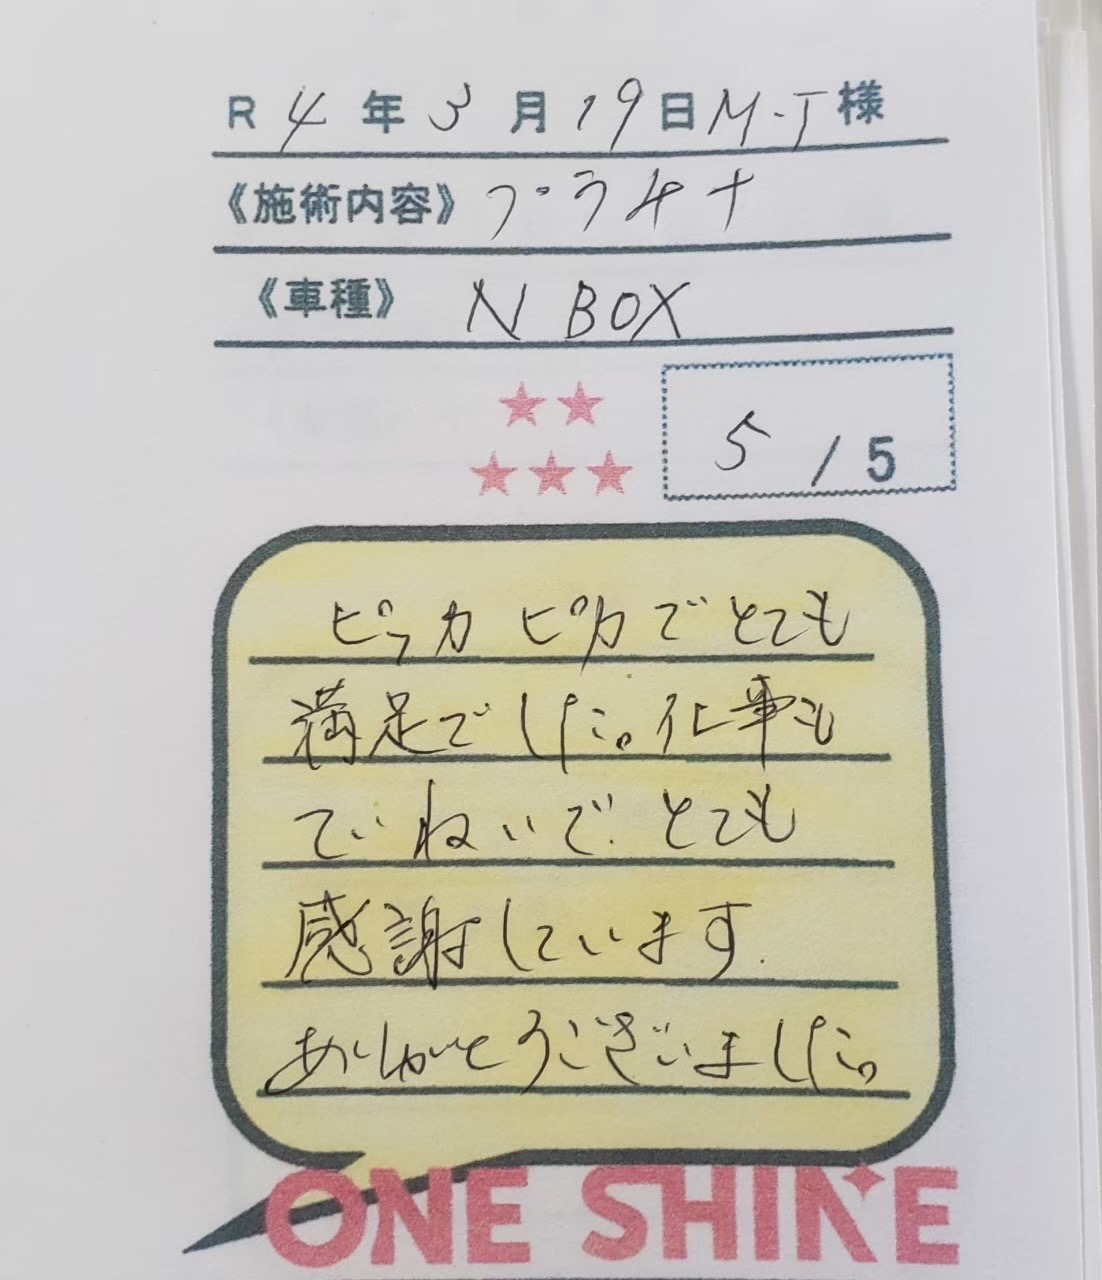 R 4 年 3 月 19 日 M.T 様
《施術内容》 プラチナ
《車種》 N BOX
5 / 5
ピッカピカでとても
満足でした。仕事も
ていねいで とても
感謝しています.
ありがとうございました。
ONE SHINE